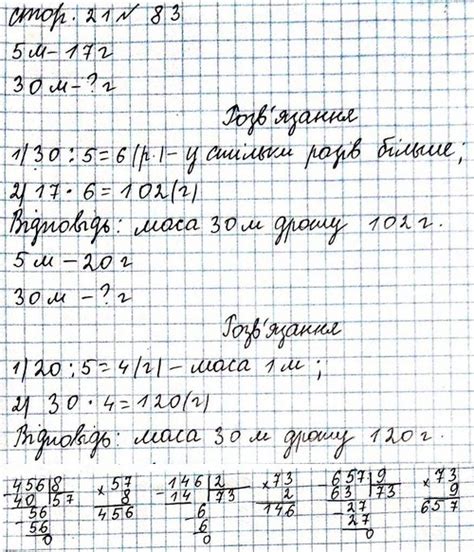 стор. 21 № 83
5 м – 17 г
30 м – ? г
Розв'язання
1) 30 : 5 = 6 (р.) – у стільки разів більше;
2) 17 · 6 = 102 (г)
Відповідь: маса 30 м дроту 102 г.
5 м – 20 г
30 м – ? г
Розв'язання
1) 20 : 5 = 4 (г) – маса 1 м;
2) 30 · 4 = 120 (г)
Відповідь: маса 30 м дроту 120 г.
456 8 × 57 146 2 × 73 657 9 × 73
40 57 8 14 73 2 63 73 9
56 456 6 146 27 657
56 6 27
0 0 0